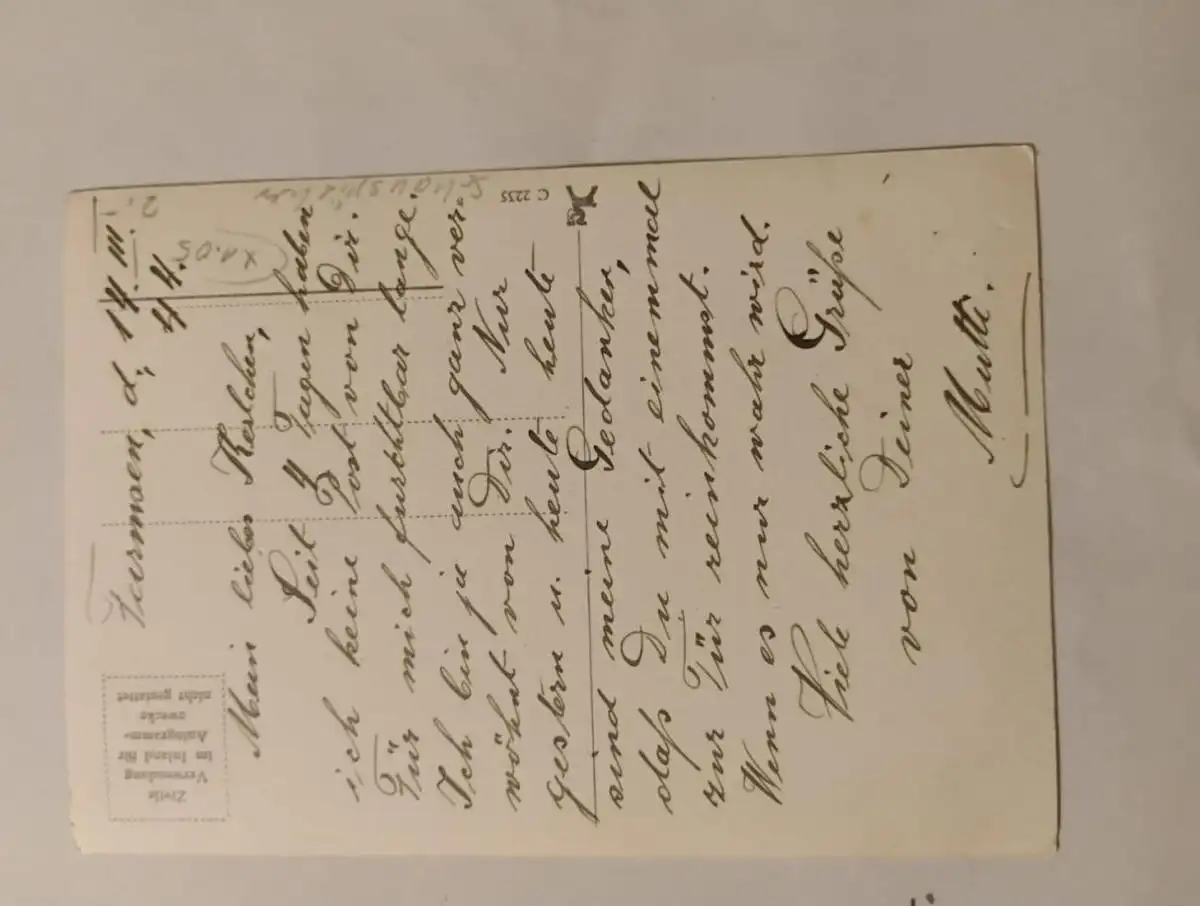 Furmsen, d, 14. III. 44.
Mein lieber Kerlchen,
Seit 4 Tagen haben
ich keine Post von Dir.
Für mich furchtbar lange.
Ich bin ja auch ganz ver-
wöhnt von Dir. Nur
gestern u. heute heute
sind meine Gedanken,
daß Du mit einemmal
zur Tür reinkommst.
Wenn es nur wahr wird.
Viele herzliche Grüße
von Deiner
Mutti.
Zivile
Verwendung
im Inland für
Autogramm-
zwecke
nicht gestattet
C 2235
Schauspieler
2.-